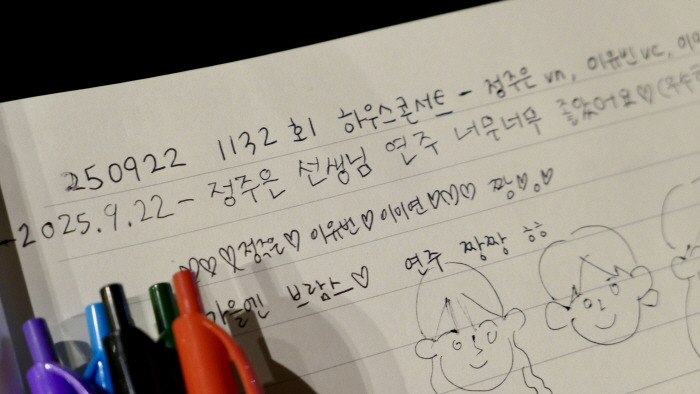 250922 1132회 하우스콘서트 - 정주은 vn, 이유빈 vc, 이이
-2025.9.22- 정주은 선생님 연주 너무너무 좋았어요♡(
♡♡♡정주은♡ 이유빈♡ 이이연♡♡♡ 짱♡.♡
가을엔 브람스♡
연주 짱짱 ㅎㅎ